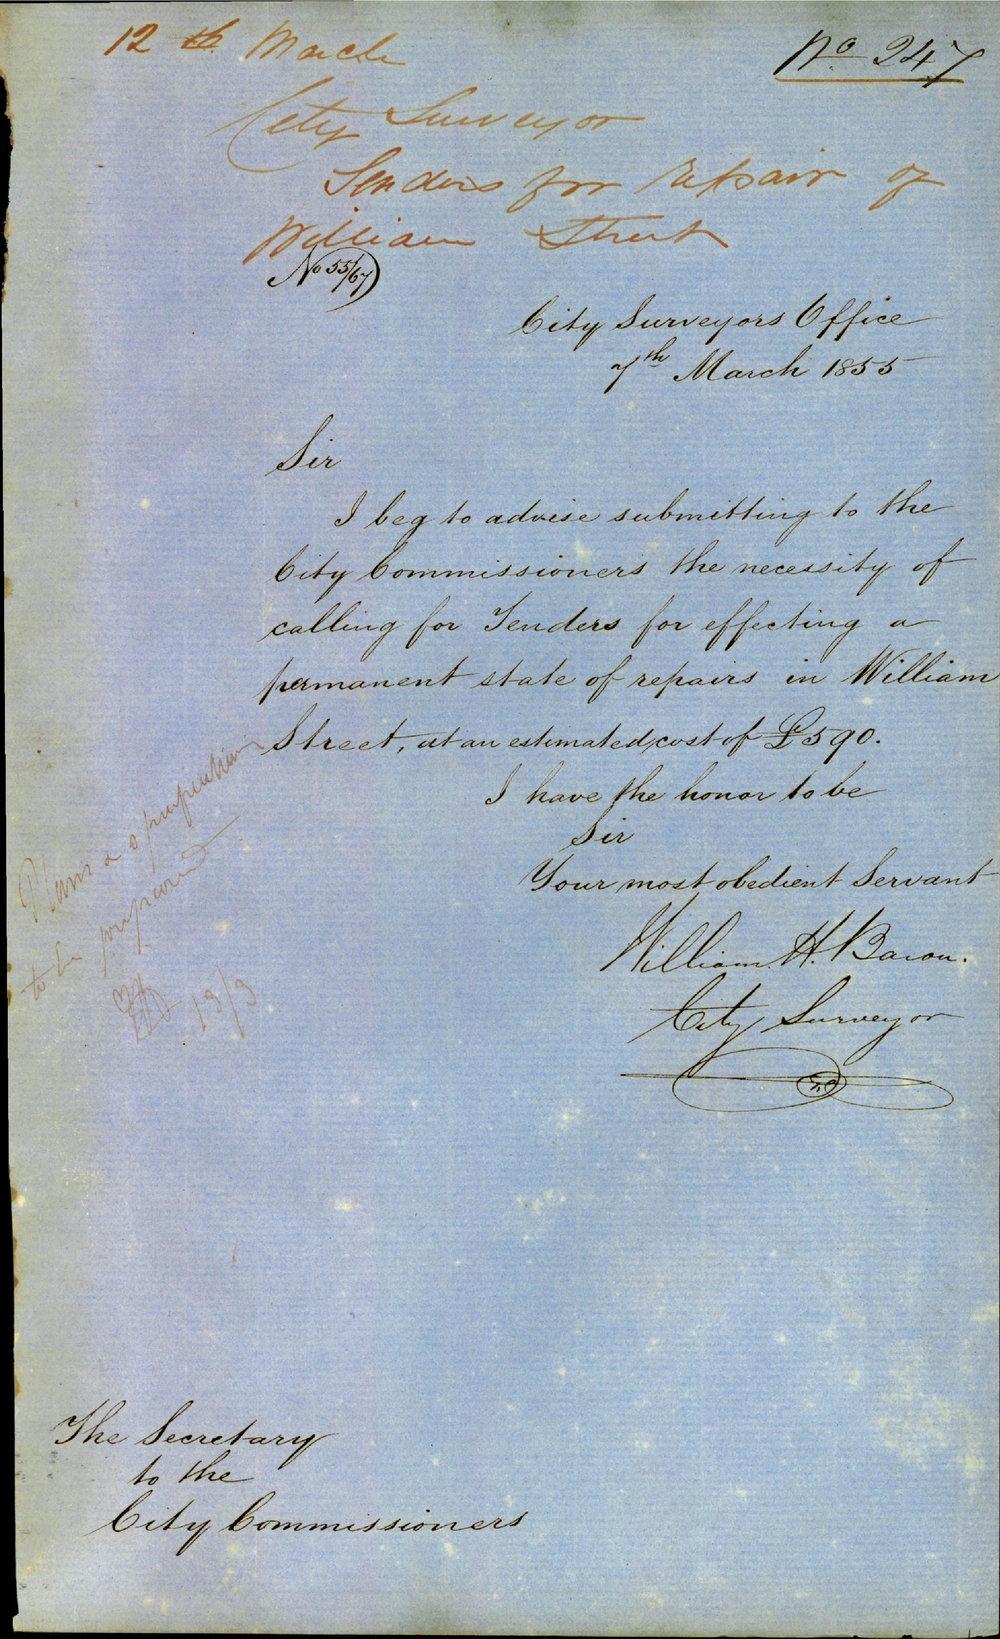 12th March
No 247
City Surveyor
Tenders for repair of
William Street
No 55/67
City Surveyors Office
7th March 1855
Sir
I beg to advise submitting to the
City Commissioners the necessity of
calling for Tenders for effecting a
permanent state of repairs in William
Street, at an estimated cost of £590.
I have the honor to be
Sir
Your most obedient Servant
William. H. Baron.
City Surveyor
Plans &
to be prepared
13/3
The Secretary
to the
City Commissioners